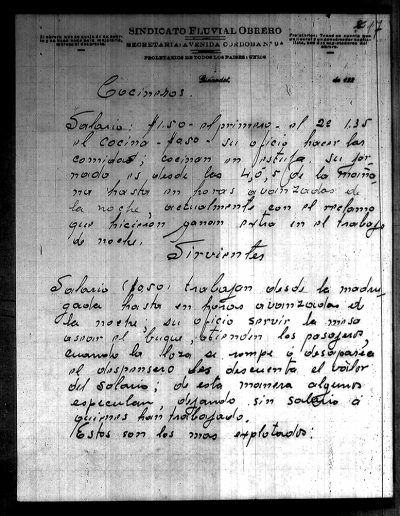 17
SINDICATO FLUVIAL OBRERO
SECRETARIA: AVENIDA CORDOBA Nº
PROLETARIOS DE TODOS LOS PAISES: UNIOS
Girardot, de 192
Cocineros.
Salario: $1.50 - el primero - el 2º 1.35
el cocina - $0.50 - su oficio hacer las
comidas; cocinan en estufa, su jor-
nada es desde las 4,0,5 de la maña-
na hasta en horas avanzadas de
la noche, actualmente con el reclamo
que hicieron ganan extra en el trabajo
de noche.
Sirvientes
Salario ($0.50) trabajan desde la madru-
gada hasta en horas avanzadas de
la noche, su oficio servir la mesa
asear el buque, atienden los pasajeros,
cuando la loza se rompe ó desaparece
el despensero les descuenta el valor
del salario; de esta manera algunos
especulan, dejando sin salario á
quienes han trabajado.
Estos son los mas explotados.